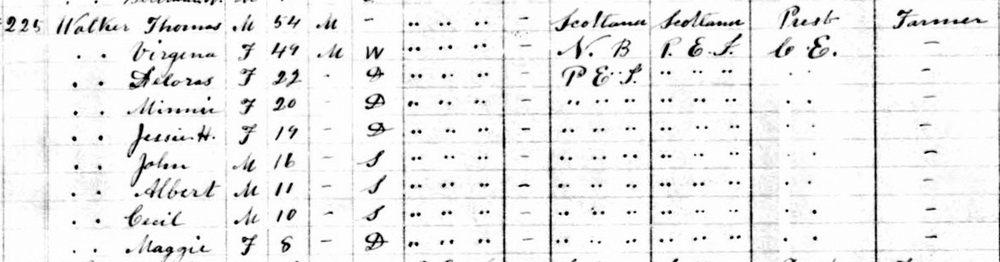 225 Walker Thomas M 54 M - " " " - Scotland Scotland Presb Farmer
" " Virgena F 49 M W " " " - N. B P. E. I. C E. -
" " Deloras F 22 - D " " " - P E I. " " " " " -
" " Minnie F 20 - D " " " - " " " " " " " " -
" " Jessie H. F 19 - D " " " - " " " " " " " " -
" " John M 16 - S " " " - " " " " " " " " -
" " Albert M 11 - S " " " - " " " " " " " " -
" " Cecil M 10 - S " " " - " " " " " " " " -
" " Maggie F 8 - D " " " - " " " " " " " " -